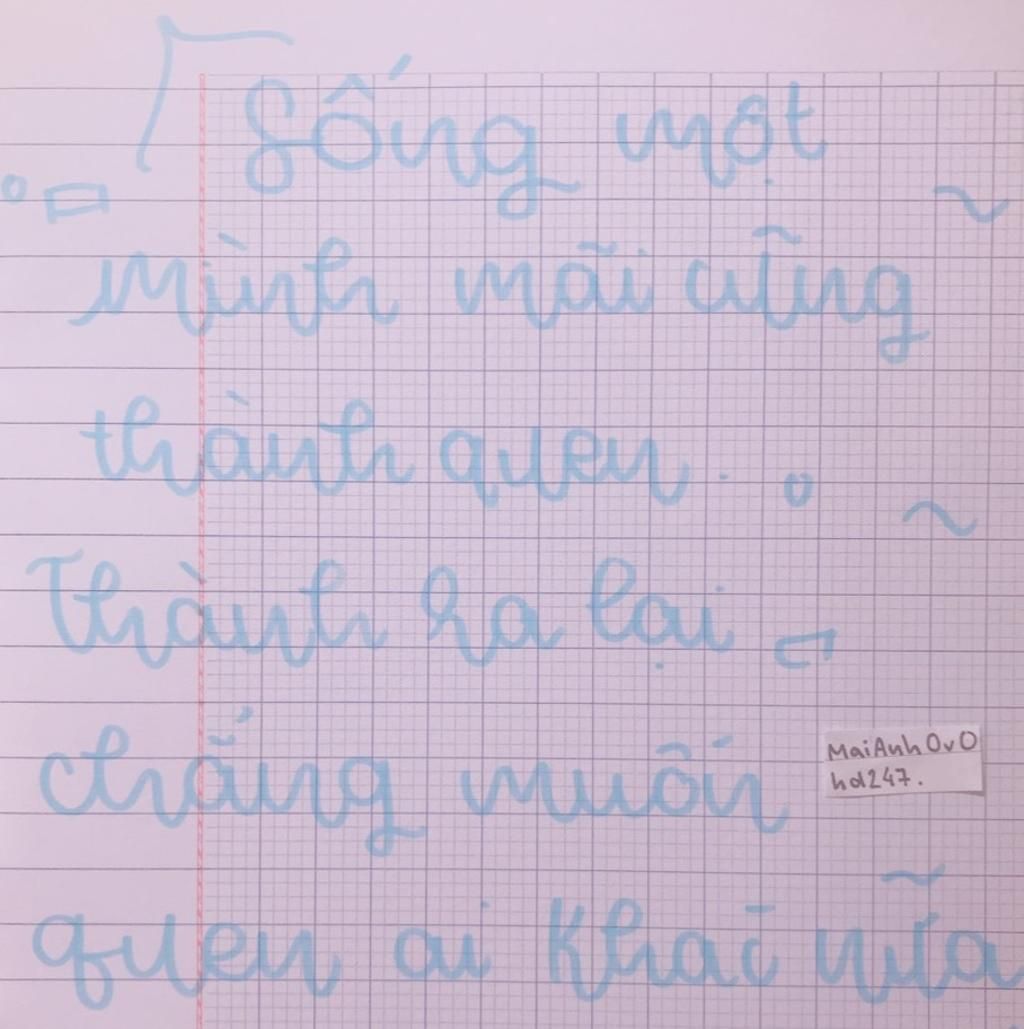 Sống một
mình mãi cũng
thành quen.
Thành ra lại
chẳng muốn
MaiAnh0v0
hd247.
quen ai khác nữa